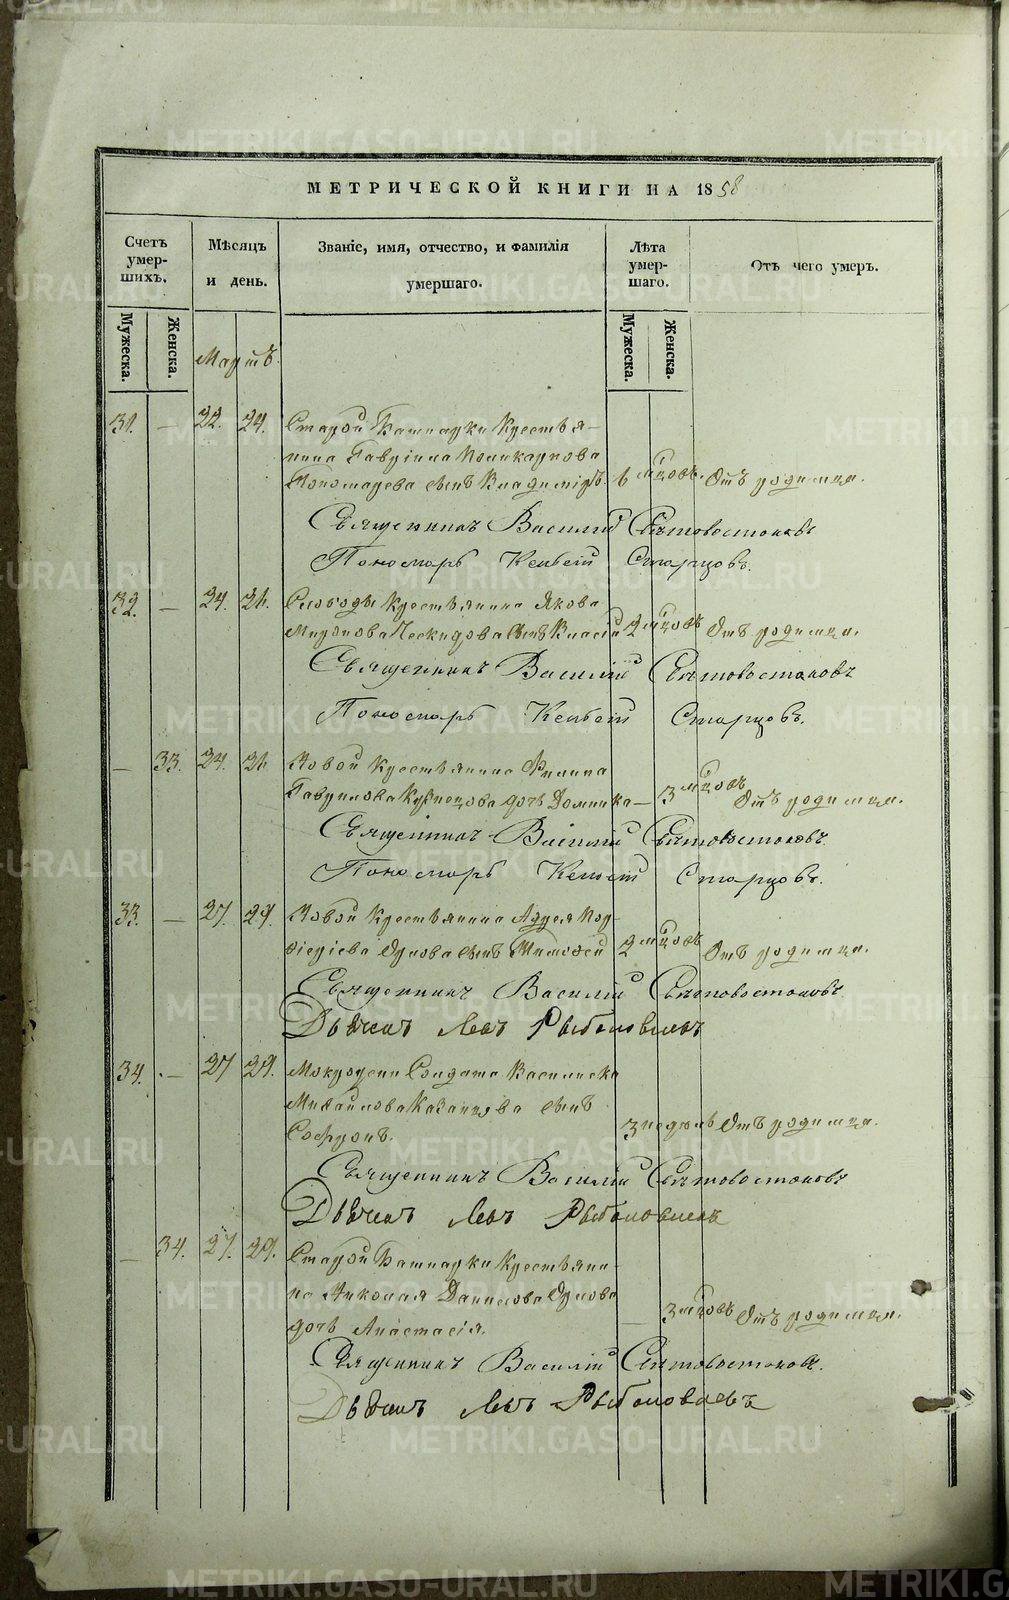 МЕТРИЧЕСКОЙ КНИГИ НА 1858
Счетъ умер-шихъ.
Мѣсяцъ и день.
Званіе, имя, отчество, и фамилія умершаго.
Лѣта умер-шаго.
Отъ чего умеръ.
Мужеска.
Женска.
Мужеска.
Женска.
Мартъ.
31. — 22. 24. Старой Башкарки Крестья-
нина Гавріила Поликарпова
Пономарева сынъ Владиміръ. 6 мцовъ. Отъ родимца.
Священникъ Василій Святовостоковъ
Пономарь Старцовъ.
32. — 24. 26. Слободы Крестьянина Якова
Миронова сынъ Власій 2 мцовъ Отъ родимца.
Священникъ Василій Святовостоковъ
Пономарь Старцовъ.
— 33. 24. 26. Новой Крестьянина Филипа
Гаврилова Кузнецова дочь Домника — 3 мцовъ Отъ родимца.
Священникъ Василій Святовостоковъ.
Пономарь Старцовъ.
33. — 27. 29. Новой Крестьянина
Орлова сынъ Тимофей 2 мцовъ Отъ родимца.
Священникъ Василій Святовостоковъ.
Дьячекъ Левъ Рыболовлевъ
34. — 27 29. Мокроуски Солдата Василиска
Михайлова Казанцова сынъ
Софронъ. 3 недѣль Отъ родимца.
Священникъ Василій Святовостоковъ
Дьячекъ Левъ Рыболовлевъ
— 34. 27. 29. Старой Башкарки Крестьяни-
на Николая Данилова Орлова
дочь Анастасія. — 3 мцовъ Отъ родимца.
Священникъ Василій Святовостоковъ.
Дьячекъ Левъ Рыболовлевъ
METRIKI.GASO-URAL.RU